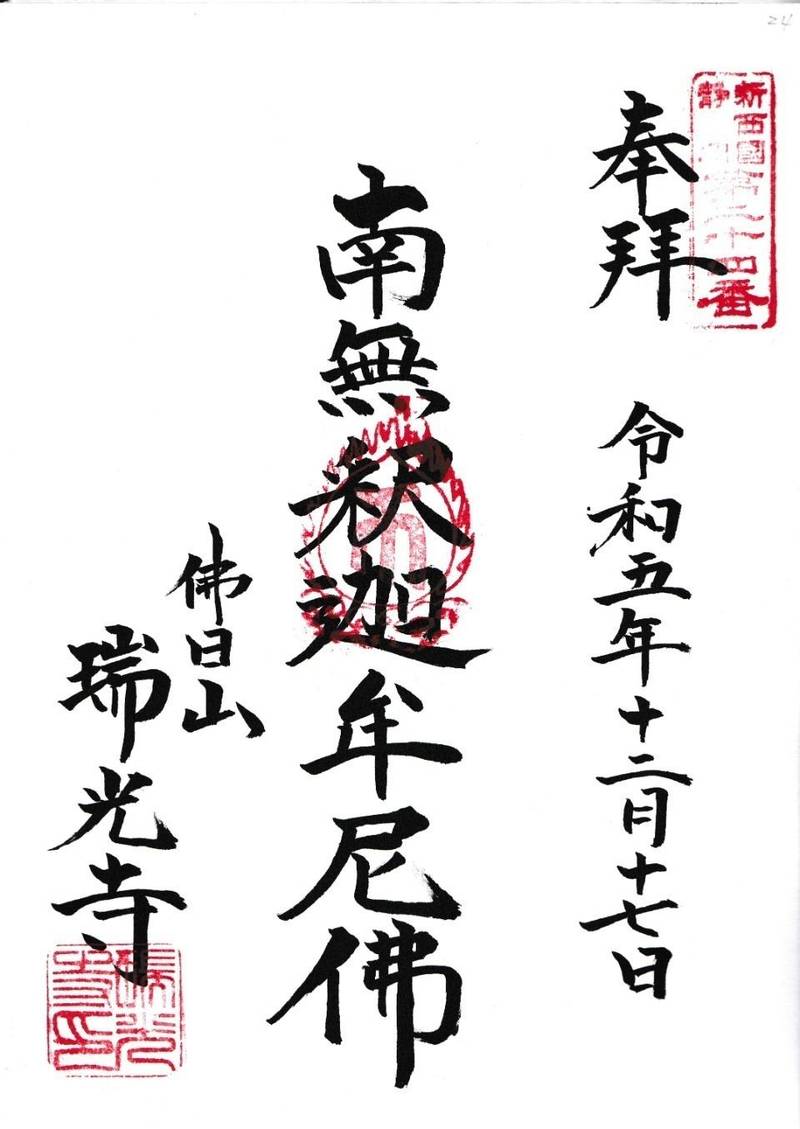 24
新西國
第二十四番
奉拝
令和五年十二月十七日
南無釈迦牟尼佛
佛日山
瑞光寺
瑞光寺印